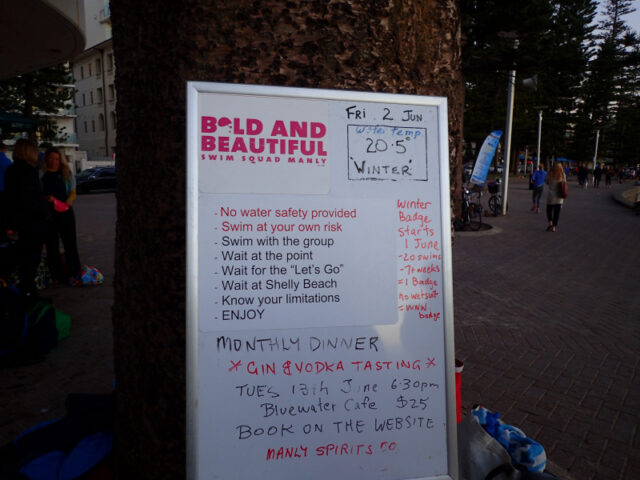 BOLD AND
BEAUTIFUL
SWIM SQUAD MANLY
FRI 2 JUN
Water temp
20.5°
'WINTER'
- No water safety provided
- Swim at your own risk
- Swim with the group
- Wait at the point
- Wait for the "Let's Go"
- Wait at Shelly Beach
- Know your limitations
- ENJOY
Winter
Badge
starts
1 June
-20 swims
-7+ weeks
=1 Badge
no wetsuit
=WNW
badge
MONTHLY DINNER
* GIN & VODKA TASTING *
TUES 13th June 6.30pm
Bluewater Cafe $25
BOOK ON THE WEBSITE
MANLY SPIRITS CO